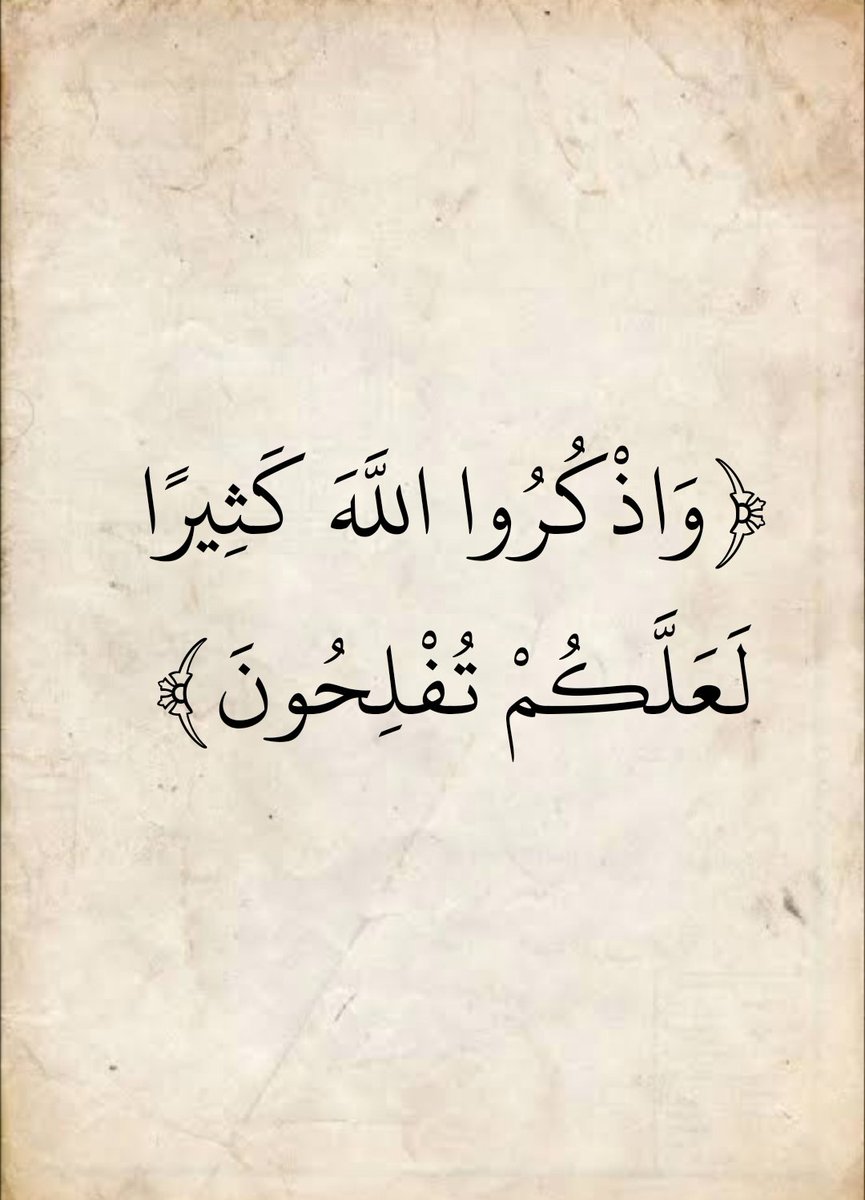 ﴿وَاذْكُرُوا اللَّهَ كَثِيرًا
لَعَلَّكُمْ تُفْلِحُونَ﴾